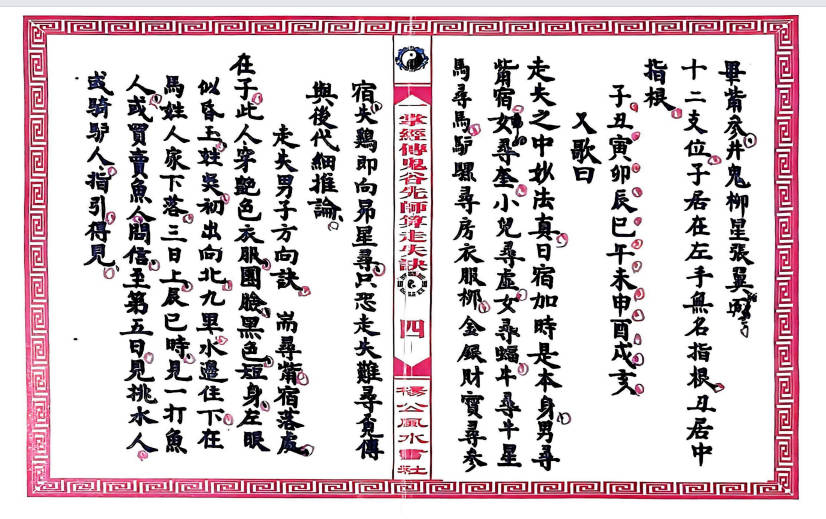 畢觜參井鬼柳星張翼
十二支位子居在左手無名指根丑居中
指根
子丑寅卯辰巳午未申酉戌亥
又歌曰
走失之中妙法真日宿加時是本身男尋
觜宿女尋奎小兒尋虛女尋蝠牛尋牛星
馬尋馬馿騾尋房衣服柳金銀財寶尋參
一掌經傳鬼谷先師算走失訣
四
楊公風水書社
宿失鷄即向昴星尋只恐走失難尋覓傳
與後代細推論
走失男子方向訣 耑尋觜宿落處
在子此人穿艷色衣服團臉黑色短身左眼
似昏玉姓吳初出向北九里水邊住下在
馬姓人家下落三日上辰巳時見一打魚
人或買賣魚人問信至第五日見挑水人
或騎馿人指引得見